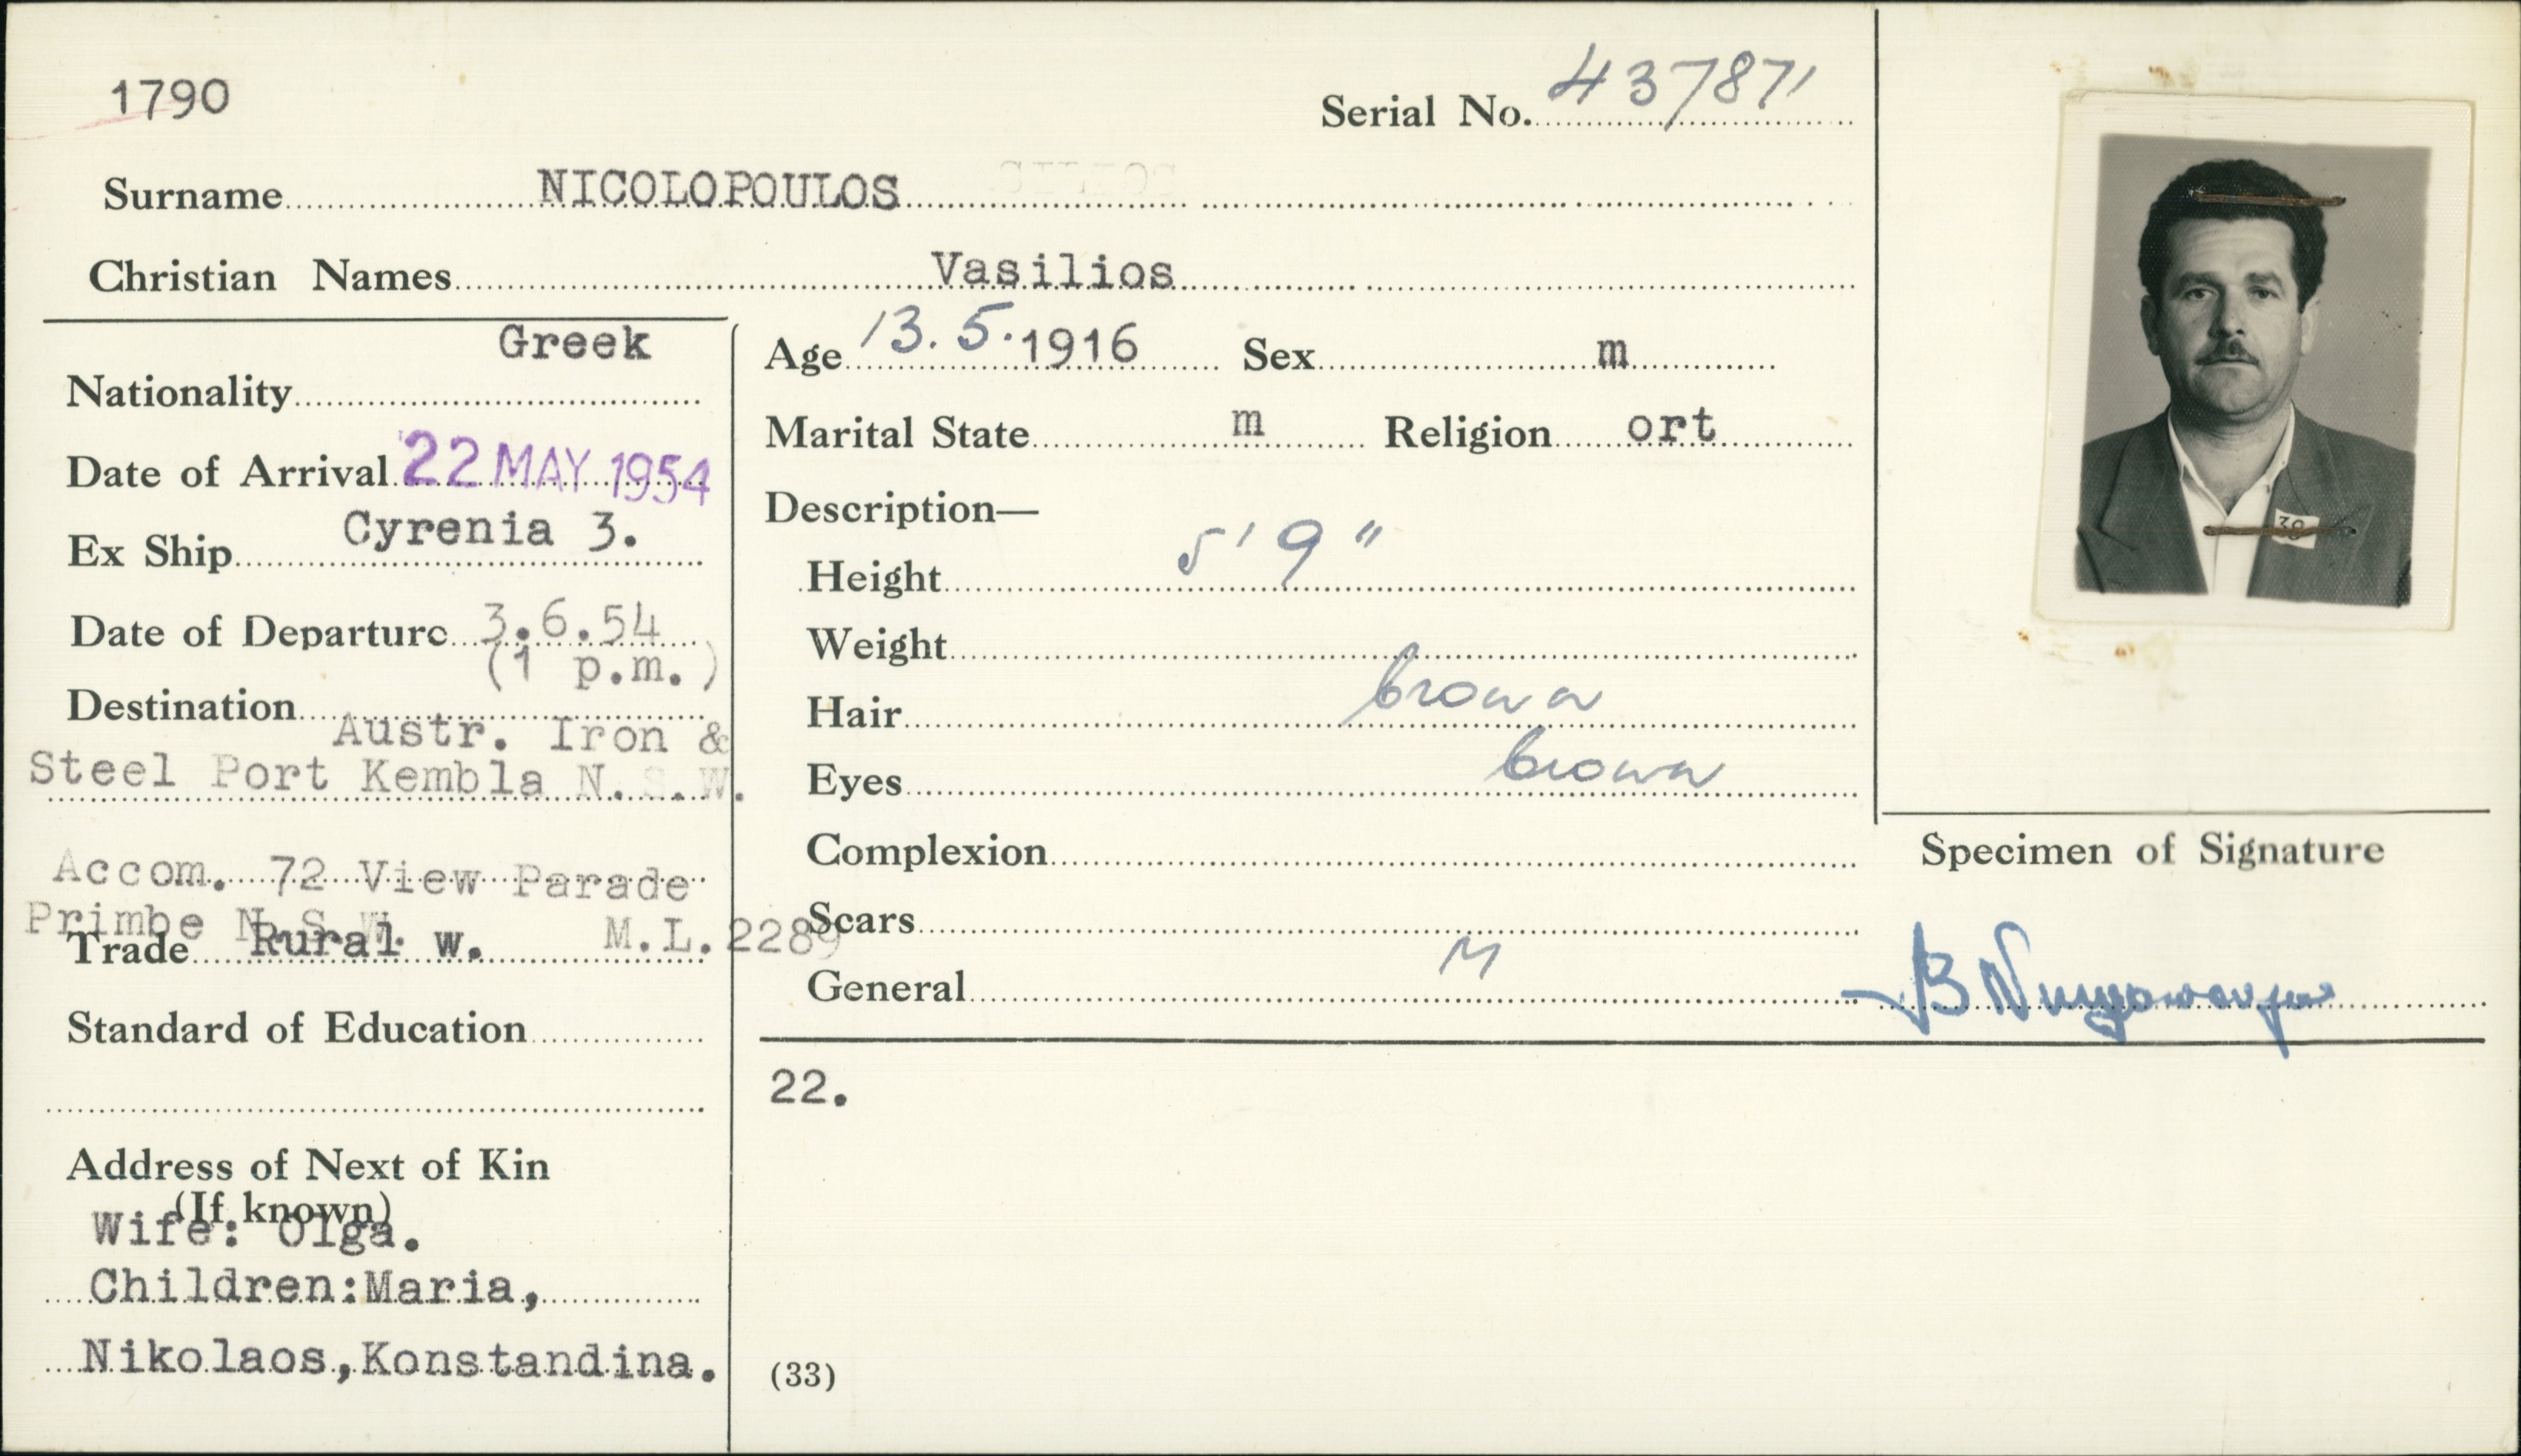 1790
Serial No. 437871
Surname NICOLOPOULOS
Christian Names Vasilios
Greek
Nationality
Date of Arrival 22 MAY 1954
Ex Ship Cyrenia 3.
Date of Departure 3.6.54
(1 p.m.)
Destination
Austr. Iron &
Steel Port Kembla N.S.W.
Accom. 72 View Parade
Primbe N.S.W.
Trade Rural w. M.L.2289
Standard of Education
Address of Next of Kin
(If known)
Wife: Olga.
Children:Maria,
Nikolaos,Konstandina.
Age 13.5.1916 Sex m
Marital State m Religion ort
Description—
Height 5'9"
Weight
Hair brown
Eyes brown
Complexion
Scars
General M
22.
(33)
39
Specimen of Signature